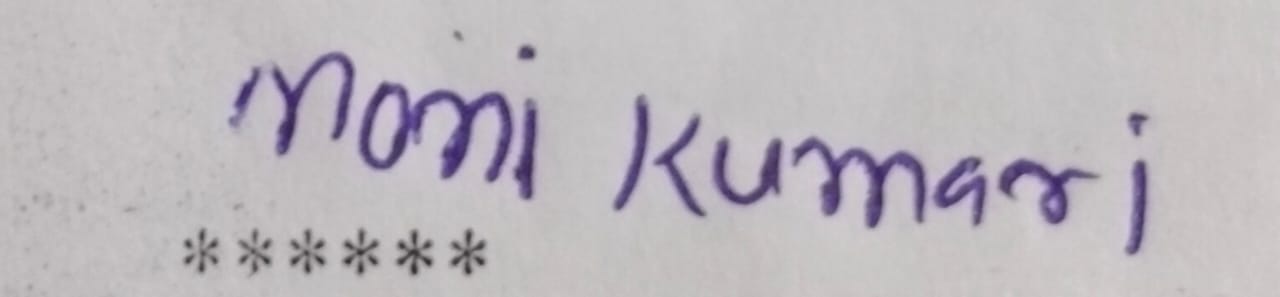 Moni Kumari
******